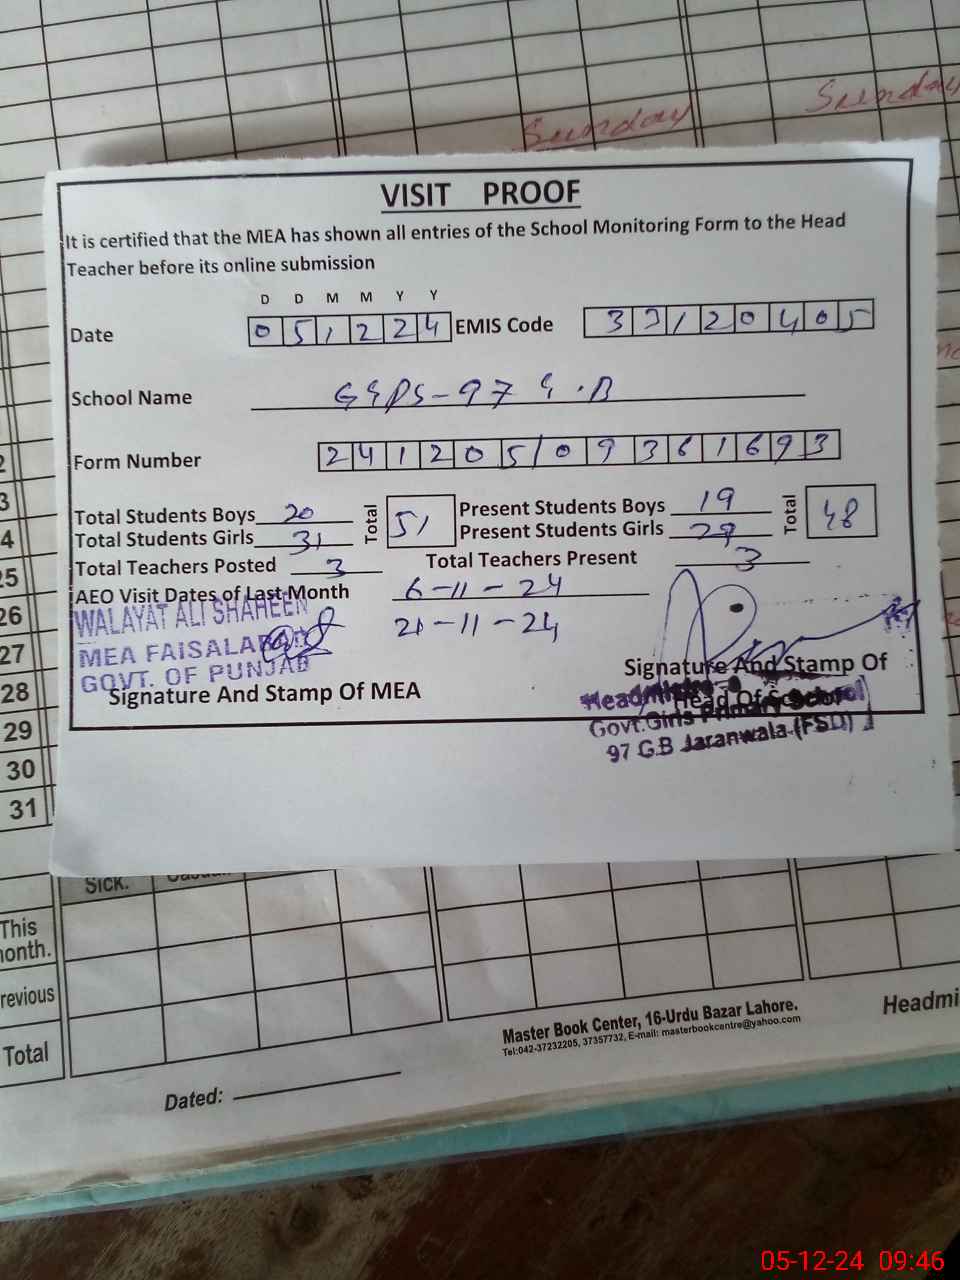 Sunday
Sunday
VISIT PROOF
It is certified that the MEA has shown all entries of the School Monitoring Form to the Head
Teacher before its online submission
D D M M Y Y
Date 0 5 1 2 2 4 EMIS Code 3 3 1 2 0 4 0 5
School Name GGPS-97 G.B
Form Number 2 4 1 2 0 5 / 0 9 3 6 1 6 9 3
Total Students Boys 20 Total 51 Present Students Boys 19 Total 48
Total Students Girls 31 Present Students Girls 29
Total Teachers Posted 3 Total Teachers Present 3
AEO Visit Dates of Last Month 6-11-24
21-11-24
WALAYAT ALI SHAHEEN
MEA FAISALABAD
GOVT. OF PUNJAB
Signature And Stamp Of MEA
Signature And Stamp Of
Head Of School
Govt. Girls Primary School
97 G.B Jaranwala (FSD)
24
25
26
27
28
29
30
31
Sick.
This
month.
Previous
Total
Master Book Center, 16-Urdu Bazar Lahore.
Tel:042-37232205, 37357732, E-mail: masterbookcentre@yahoo.com
Headmi
Dated:
05-12-24 09:46